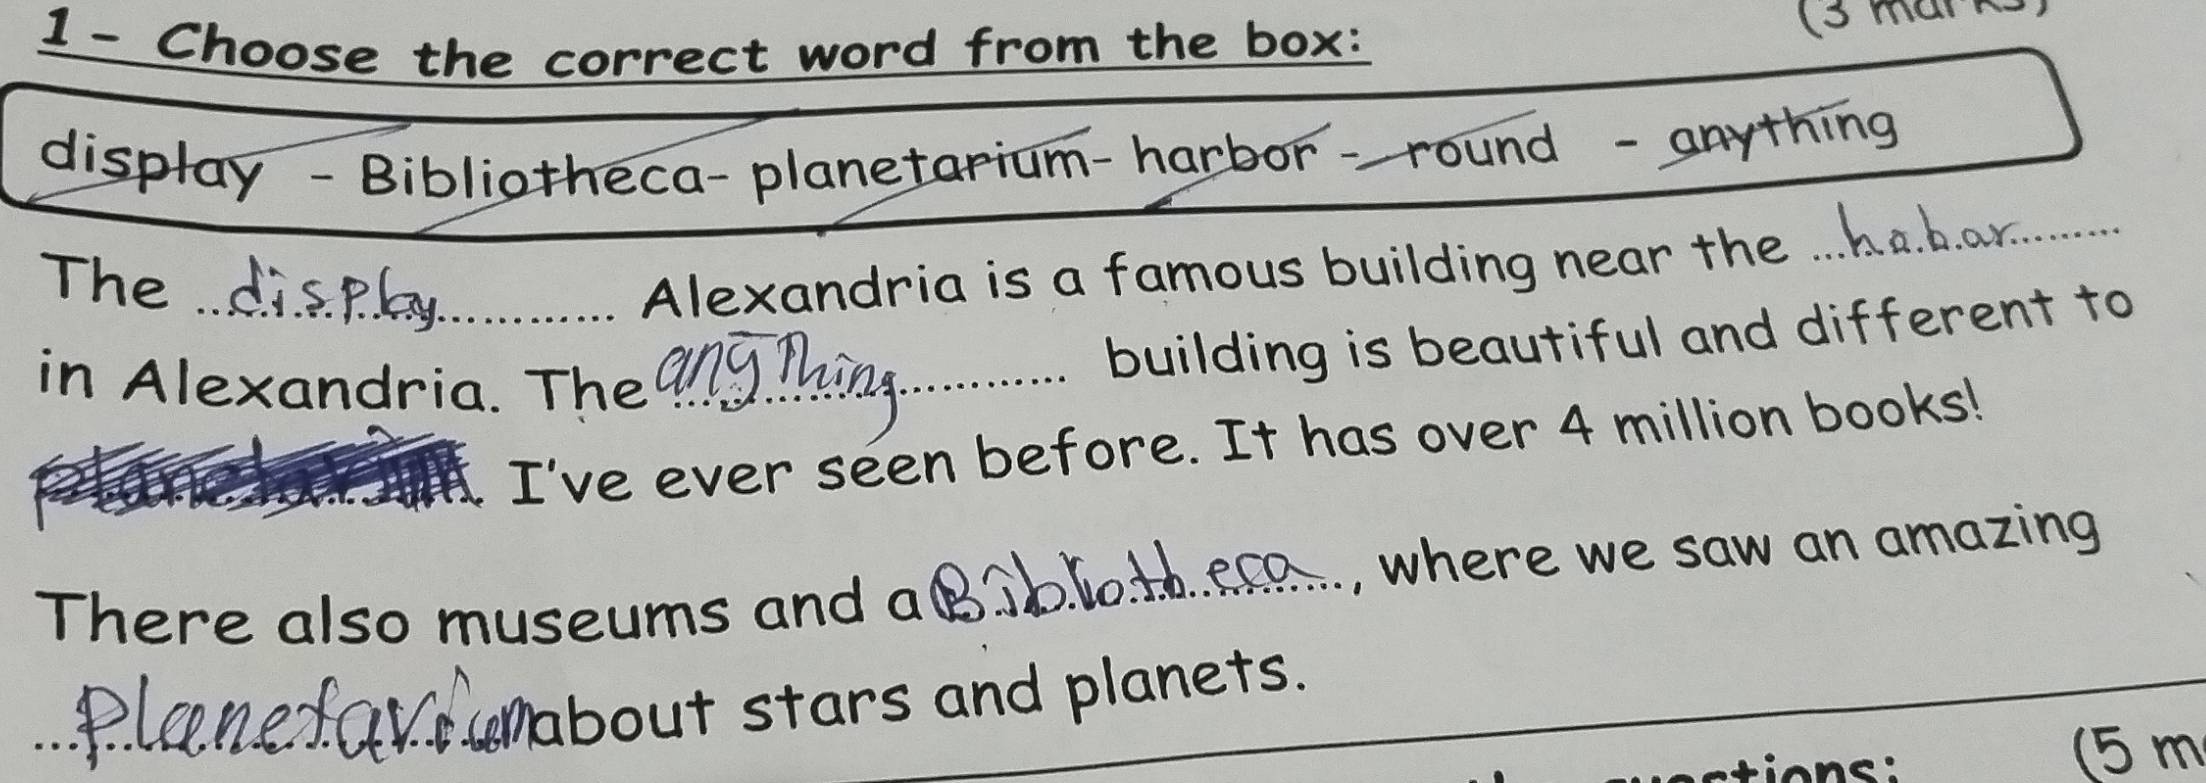 1- Choose the correct word from the box:
(3 marks)
display - Bibliotheca- planetarium- harbor - round - anything
The ..display............ Alexandria is a famous building near the ...habar.........
in Alexandria. The anything............ building is beautiful and different to
I've ever seen before. It has over 4 million books!
There also museums and a Bibliotheca..., where we saw an amazing
...planetarium about stars and planets.
(5 m